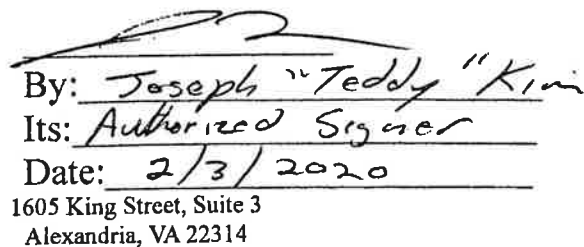 By: Joseph "Teddy" Kim
Its: Authorized Signer
Date: 2/3/2020
1605 King Street, Suite 3
Alexandria, VA 22314